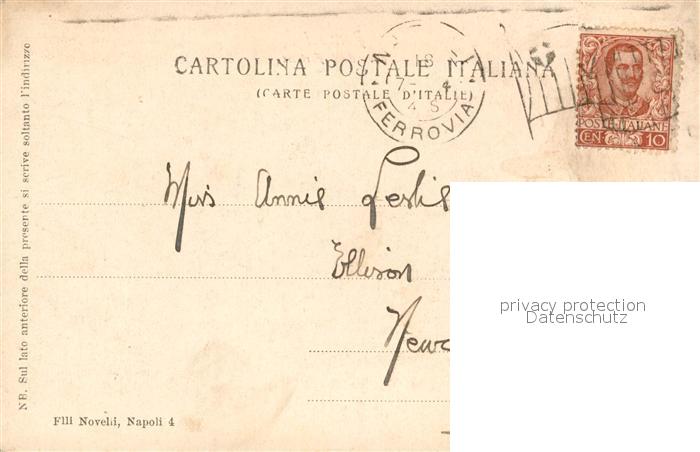 CARTOLINA POSTALE ITALIANA
(CARTE POSTALE D'ITALIE)
18
7- 4
4 S
FERROVIA
POSTE ITALIANE
CEN 10
Miss Annie Leslie
Ellison
Newc
privacy protection
Datenschutz
NB. Sul lato anteriore della presente si scrive soltanto l'indirizzo
Flli Novelli, Napoli 4